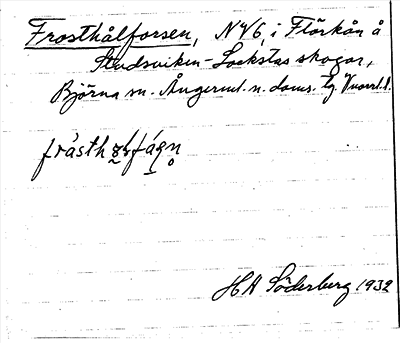 Frosthålforsen, NV6, i Flärkån å
Studsviken-Lockstas skogar,
Björna sn. Ångerml. n. doms. tg. Vnorrl. l.
H A Söderberg 1932